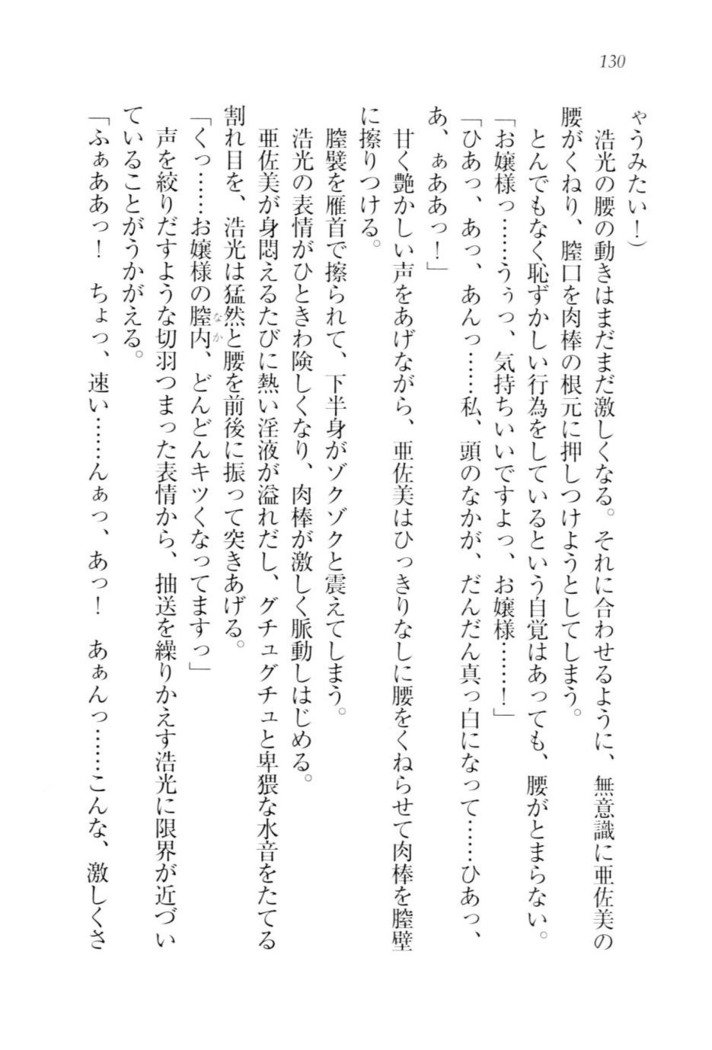 130
ゃうみたい！）
　浩光の腰の動きはまだまだ激しくなる。それに合わせるように、無意識に亜佐美の
腰がくねり、膣口を肉棒の根元に押しつけようとしてしまう。
　とんでもなく恥ずかしい行為をしているという自覚はあっても、腰がとまらない。
「お嬢様っ……うぅっ、気持ちいいですよっ、お嬢様……！」
「ひあっ、あっ、あんっ……私、頭のなかが、だんだん真っ白になって……ひあっ、
あ、ぁああっ！」
　甘く艶かしい声をあげながら、亜佐美はひっきりなしに腰をくねらせて肉棒を膣壁
に擦りつける。
　膣襞を雁首で擦られて、下半身がゾクゾクと震えてしまう。
　浩光の表情がひときわ険しくなり、肉棒が激しく脈動しはじめる。
　亜佐美が身悶えるたびに熱い淫液が溢れだし、グチュグチュと卑猥な水音をたてる
割れ目を、浩光は猛然と腰を前後に振って突きあげる。
「くっ……お嬢様の膣内なか、どんどんキツくなってますっ」
　声を絞りだすような切羽つまった表情から、抽送を繰りかえす浩光に限界が近づい
ていることがうかがえる。
「ふぁああっ！　ちょっ、速い……んぁっ、あっ！　あぁんっ……こんな、激しくさ